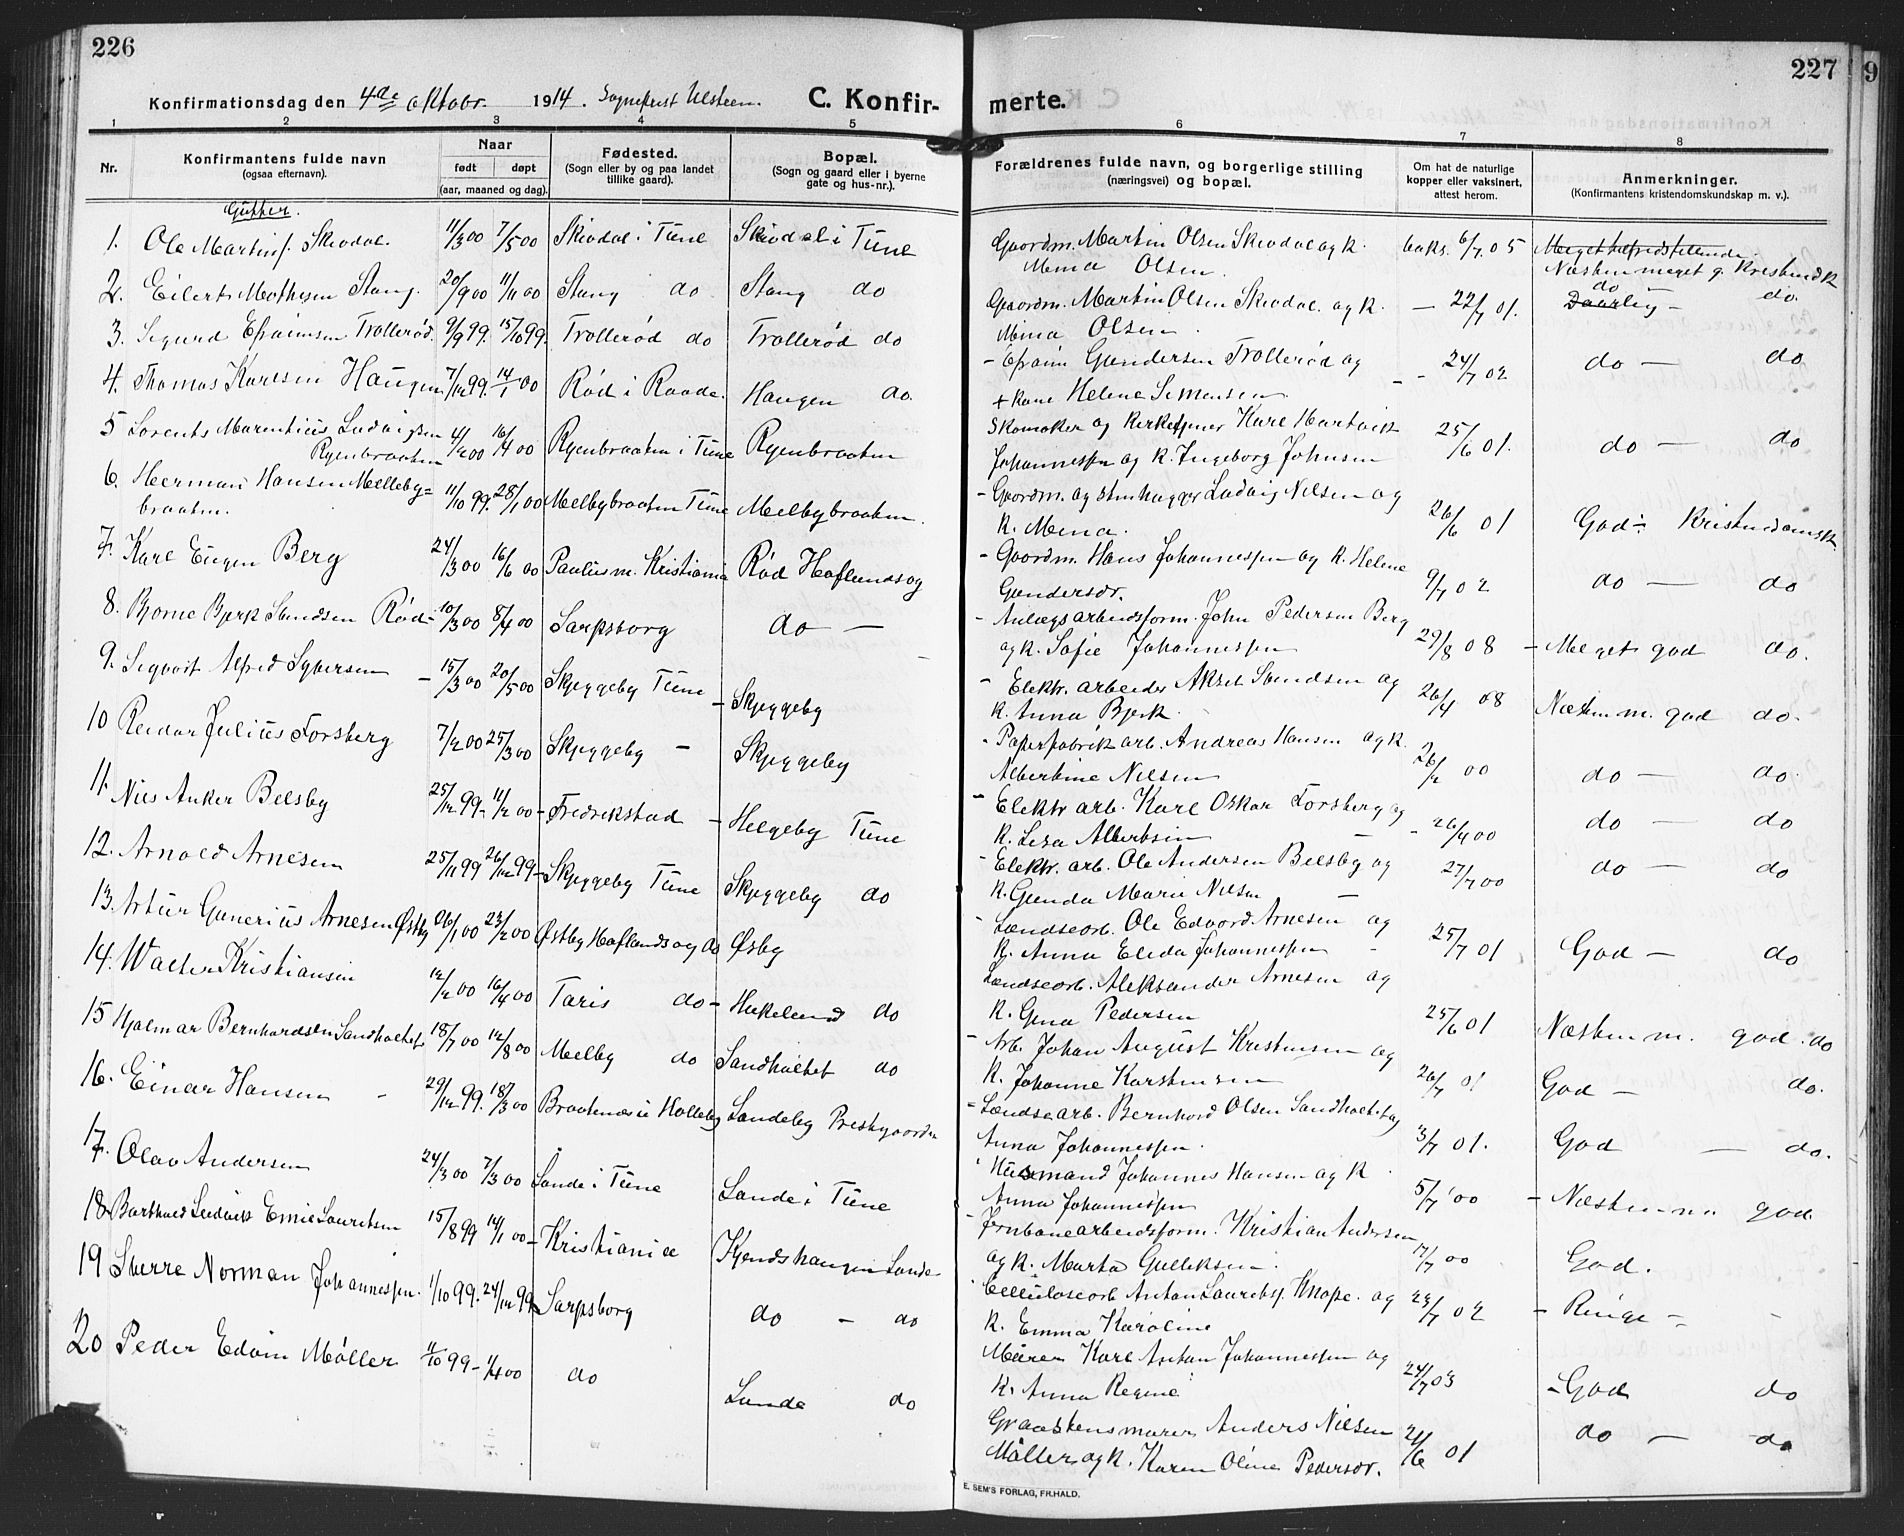 226
Konfirmationsdag den 4de oktober 1914. Sogneprest Ulsteen.
C. Konfir-
1 2 3 4 5
Nr.
Konfirmantens fulde navn
(ogsaa efternavn).
Naar
født døpt
(aar, maaned og dag).
Fødested.
(Sogn eller by og paa landet
tillike gaard).
Bopæl.
(Sogn og gaard eller i byerne
gate og hus-nr.).
Gutter.
1. Ole Martinsf. Skivdal. 11/3 00 7/5 00 Skivdal i Tune Skivdal i Tune
2. Eilert Mathesen Stang. 20/9 00 11/11 00 Stang do Stang do
3. Sigurd Efraimsen Trollerød. 9/9 99. 15/10 99. Trollerød do Trollerød do
4. Thomas Karlsen Haugen 7/12 99. 14/1 00 Rød i Raade. Haugen do.
5 Lorents Marentius Ludvigsen
Ryenbraaten 4/2 00 16/4 00 Ryenbraaten i Tune Ryenbraaten
6. Herman Hansen Melleby=
braaten. 11/10 99. 28/1 00 Melbybraaten Tune Melbybraaten.
7. Karl Eugen Berg 24/3 00 16/6 00 Paulus m. Kristiania Rød Haflundsog
8. Bjarne Bjerk Sundsen Rød 10/3 00 8/4 00 Sarpsborg do —
9. Sigvart Alfred Syversen — 15/3 00 20/5 00 Skjeggeby Tune — Skjeggeby
10 Reidar Julius Forsberg 7/2 00 25/3 00 Skjeggeby — Skjeggeby
11. Nils Anker Belsby 25/12 99- 11/2 00- Fredrikstad — Helgeby Tune
12. Arnold Arnesen 25/11 99 26/12 99- Skjeggeby Tune Skjeggeby do
13. Artur Gunerius Arnesen Østby 26/1 00 23/2 00 Østby Haflundsog do Øsby
14. Walter Kristiansen 12/2 00 16/4 00 Taris do- Hukelund do
15 Hjalmar Bernhardsen Sandholtet 18/7 00 12/8 00 Melby do Sandholtet do
16. Einar Hansen - 29/12 99. 18/3 00 Braatnes i Holleby Sandeby Prestgaarden
17. Olav Andersen 24/3 00 7/3 00 Sande i Tune Sande i Tune
18 Barthold Ludvik Emil Lauritsen 15/8 99 14/1 00- Kristiania Kjendshaugen Sande
19 Sverre Norman Johannessen. 1/10 99. 24/12 99 Sarpsborg do - do
20 Peder Edvin Møller 11/10 99- 1/4 00 do Sande do
227
merte.
6 7 8
Forældrenes fulde navn, og borgerlige stilling
(næringsvei) og bopæl.
Om hat de naturlige
kopper eller vaksinert,
attest herom.
Anmerkninger.
(Konfirmantens kristendomskundskap m. v.).
Gaardm. Martin Olsen Skivdal og k. vaks. 6/7 05 Meget tilfredstillende
Mina Olsen. Næsten meget g. kristendk
Gaardm. Martin Olsen Skivdal. og k. — 22/7 01. do Daarlig — do.
Mina Olsen.
- Efraim Gundersen Trollerød og 24/7 02 do — do
+ kone Helene Simensen.
Skomaker og kirketjener Karl Hartvik 25/6 01. do — do
Johannessen og k. Ingeborg Johnsen
- Gaardm. og stenhugger Ludvig Nilsen og
k. Mina. 26/6 01 God - Kristendomsk.
- Gaardm. Hans Johannessen og k. Helene
Gundersdr. 9/7 02 do — do
- Anlægsarbeidsform. John Pedersen Berg
og k. Sofie Johannessen 29/8 08 - Meget god do.
- Elektr. arbeider Aksel Sundsen og
k. Anna Bjerk. 26/4 08 Næsten m. god do.
- Papirfabrik arb. Andreas Hansen og k.
Albertine Nilsen 26/2 00 do — do.
- Elektr arb. Karl Oskar Forsberg og
k. Lisa Albertsen - 26/9 00 do — do
- Elektr. arb. Ole Andersen Belsby og
k. Gunda Marie Nilsen — 27/7 00 do — do
- Lændsearb. Ole Edvard Arnesen og
k. Anna Elida Johannessen - 25/7 01 God — do
Lændsearb. Aleksander Arnesen og
k. Gina Pedersen 25/6 01 Næsten m. god. do
- Arb. Johan August Kristensen og
k. Johanne Karstensen 26/7 01 God — do.
- Lændsearb. Bernhard Olsen Sandholtet og
Anna Johannessen. 3/7 01. God — do.
Husmand Johannes Hansen og k
Anna Johannessen 5/7 00 - Næsten m god
- Jernbanearbeidsform. Kristian Andersen
og k. Marta Gulleksen. 17/7 00 God.
Cellulosearb Anton Lauritsf. Knope. og
k. Emma Karoline 23/7 02 - Ringe -
Murer Karl Anton Johannessen og
k. Anna Regine 24/7 03 - God do
Graastensmurer Anders Nilsen
Møller og k. Karen Oline Pedersdr. 21/6 01 do — do
E. SEM'S FORLAG, FR.HALD.
9